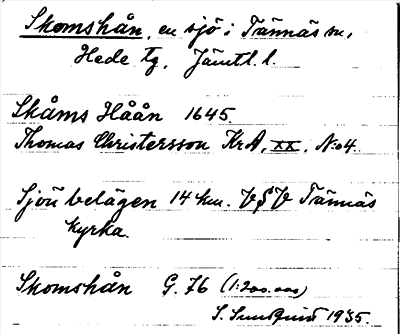 Skomshån, en sjö i Tännäs sn,
Hede tg, Jämtl. l.
Skåms Håån 1645.
Thomas Christersson KrA, XX, No 4.
Sjön belägen 14 km. VSV Tännäs
kyrka.
Skomshån G. 76 (1:200.000)
S. Sundquist 1935.